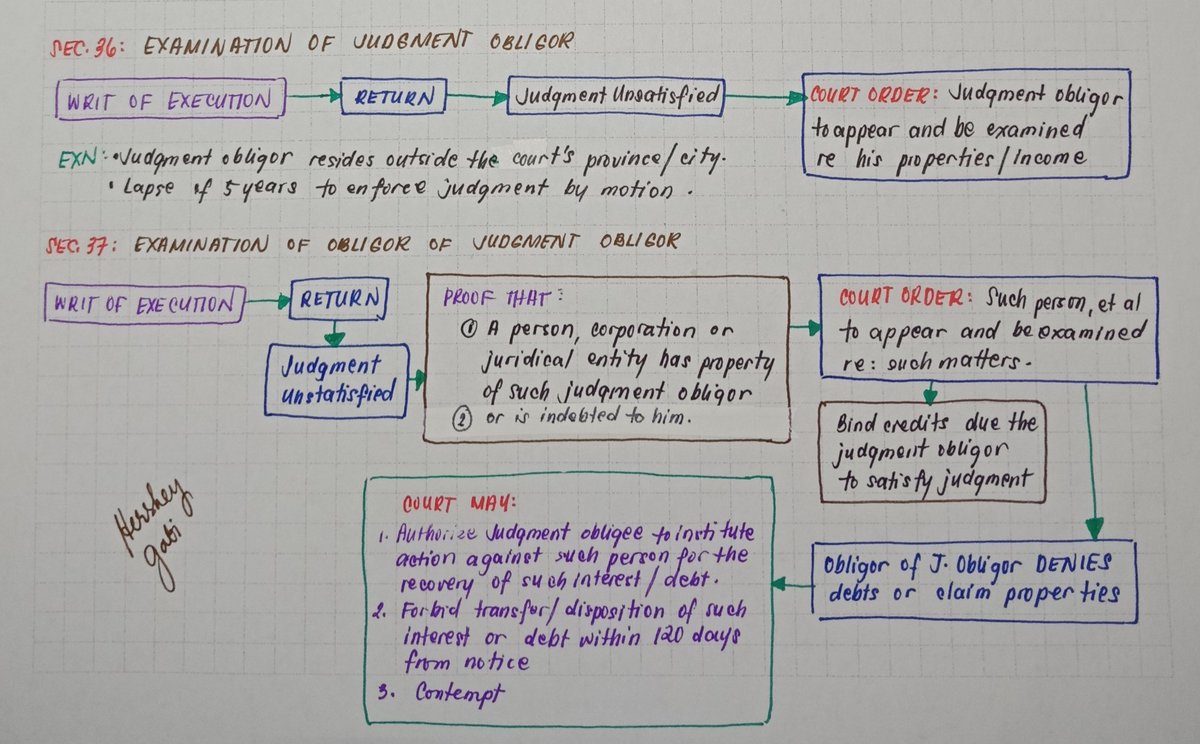 SEC. 36: EXAMINATION OF JUDGMENT OBLIGOR
WRIT OF EXECUTION
RETURN
Judgment Unsatisfied
COURT ORDER: Judgment obligor
to appear and be examined
re his properties/income
EXN: • Judgment obligor resides outside the court's province/city.
• Lapse of 5 years to enforce judgment by motion.
SEC. 37: EXAMINATION OF OBLIGOR OF JUDGMENT OBLIGOR
WRIT OF EXECUTION
RETURN
Judgment
unstatisfied
PROOF THAT:
① A person, corporation or
juridical entity has property
of such judgment obligor
② or is indebted to him.
COURT ORDER: Such person, et al
to appear and be examined
re: such matters.
Bind credits due the
judgment obligor
to satisfy judgment
Obligor of J. Obligor DENIES
debts or claim properties
COURT MAY:
1. Authorize Judgment obligee to institute
action against such person for the
recovery of such interest/debt.
2. Forbid transfer/disposition of such
interest or debt within 120 days
from notice
3. Contempt
Hershey
Gabi